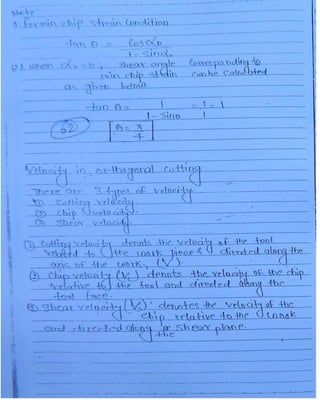 Note
1. for min chip strain condition
tan θ = cos α₀ / 1 - sin α₀
Q.1 when α₀ = 0, shear angle corresponding to
min chip strain can be calculated
as given below
tan θ = 1 / 1 - sin 0 = 1/1 = 1
62
θ = π/4
Velocity in orthogonal cutting
There are 3 types of velocity
(1) Cutting velocity
(2) Chip velocity
(3) Shear velocity
(1) Cutting velocity denots the velocity of the tool
related to the work piece & directed along the
axis of the work, (V)
(2) Chip velocity (Vc) denots the velocity of the chip
relative to the tool and directed along the
tool face.
(3) Shear velocity (Vs): denotes the velocity of the
chip relative to the work
and directed along the shear plane